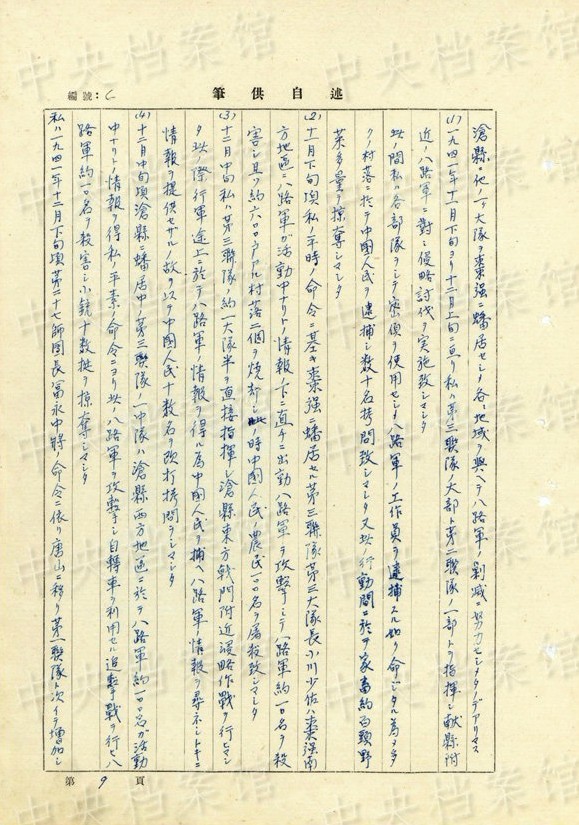 編號：
述自供筆
滄縣ニ他ノ一ケ大隊ヲ棗强ニ蟠居セシメ各〻地域ヲ與ヘテ八路軍ノ剿滅ニ努力セシメタノデアリマス
(1) 一九四一年十一月下旬ヨリ十二月上旬ニ亘リ私ハ第三聯隊ノ大部ト第二聯隊ノ一部トヲ指揮シ獻縣附
近ノ八路軍ニ對シ侵略討伐ヲ実施致シマシタ
此ノ間私ハ各部隊ヲシテ密偵ヲ使用セシメ八路軍ノ工作員ヲ逮捕スル如ク命ジタル為メ多
クノ村落ニ於テ中國人民ヲ逮捕シ数十名拷問致シマシタ又此ノ行動間ニ於テ家畜約百頭野
菜多量ヲ掠奪シマシタ
(2) 十一月下旬頃私ノ平時ノ命令ニ基キ棗强ニ蟠居セル第三聯隊第三大隊長小川少佐ハ棗强南
方地區ニ八路軍ガ活動中ナリトノ情報ノ下ニ直チニ出動八路軍ヲ攻撃シテ八路軍約一〇名ヲ殺
害シ且ツ約六〇〇戸アル村落二個ヲ焼却シ此ノ時中國人民ノ農民一〇〇名ヲ屠殺致シマシタ
(3) 十二月中旬私ハ第三聯隊ノ約一大隊半ヲ直接指揮シ滄縣東方戟門附近侵略作戰ヲ行ヒマシ
タ此ノ際行軍途上ニ於テ八路軍ノ情報ヲ得ル為中國人民ヲ捕ヘ八路軍ノ情報ヲ尋ネシトキニ
情報ヲ提供セザルノ故ヲ以テ中國人民十数名ヲ殴打拷問ヲシマシタ
(4) 十二月中旬頃滄縣ニ蟠居中ノ第三聯隊ノ一中隊ハ滄縣西方地區ニ於テ八路軍約一〇〇名ガ活動
中ナリトノ情報ヲ得私ノ平素ノ命令ニヨリ此ノ八路軍ヲ攻撃シ自轉車ヲ利用セル追撃戰ヲ行ヒ八
路軍約一〇名ヲ殺害シ小銃十数挺ヲ掠奪シマシタ
私ハ一九四一年十二月下旬頃第二十七師團長冨永中將ノ命令ニ依リ唐山ニ移リ第一聯隊ト次イデ増加シ
第 9 頁
中央档案馆